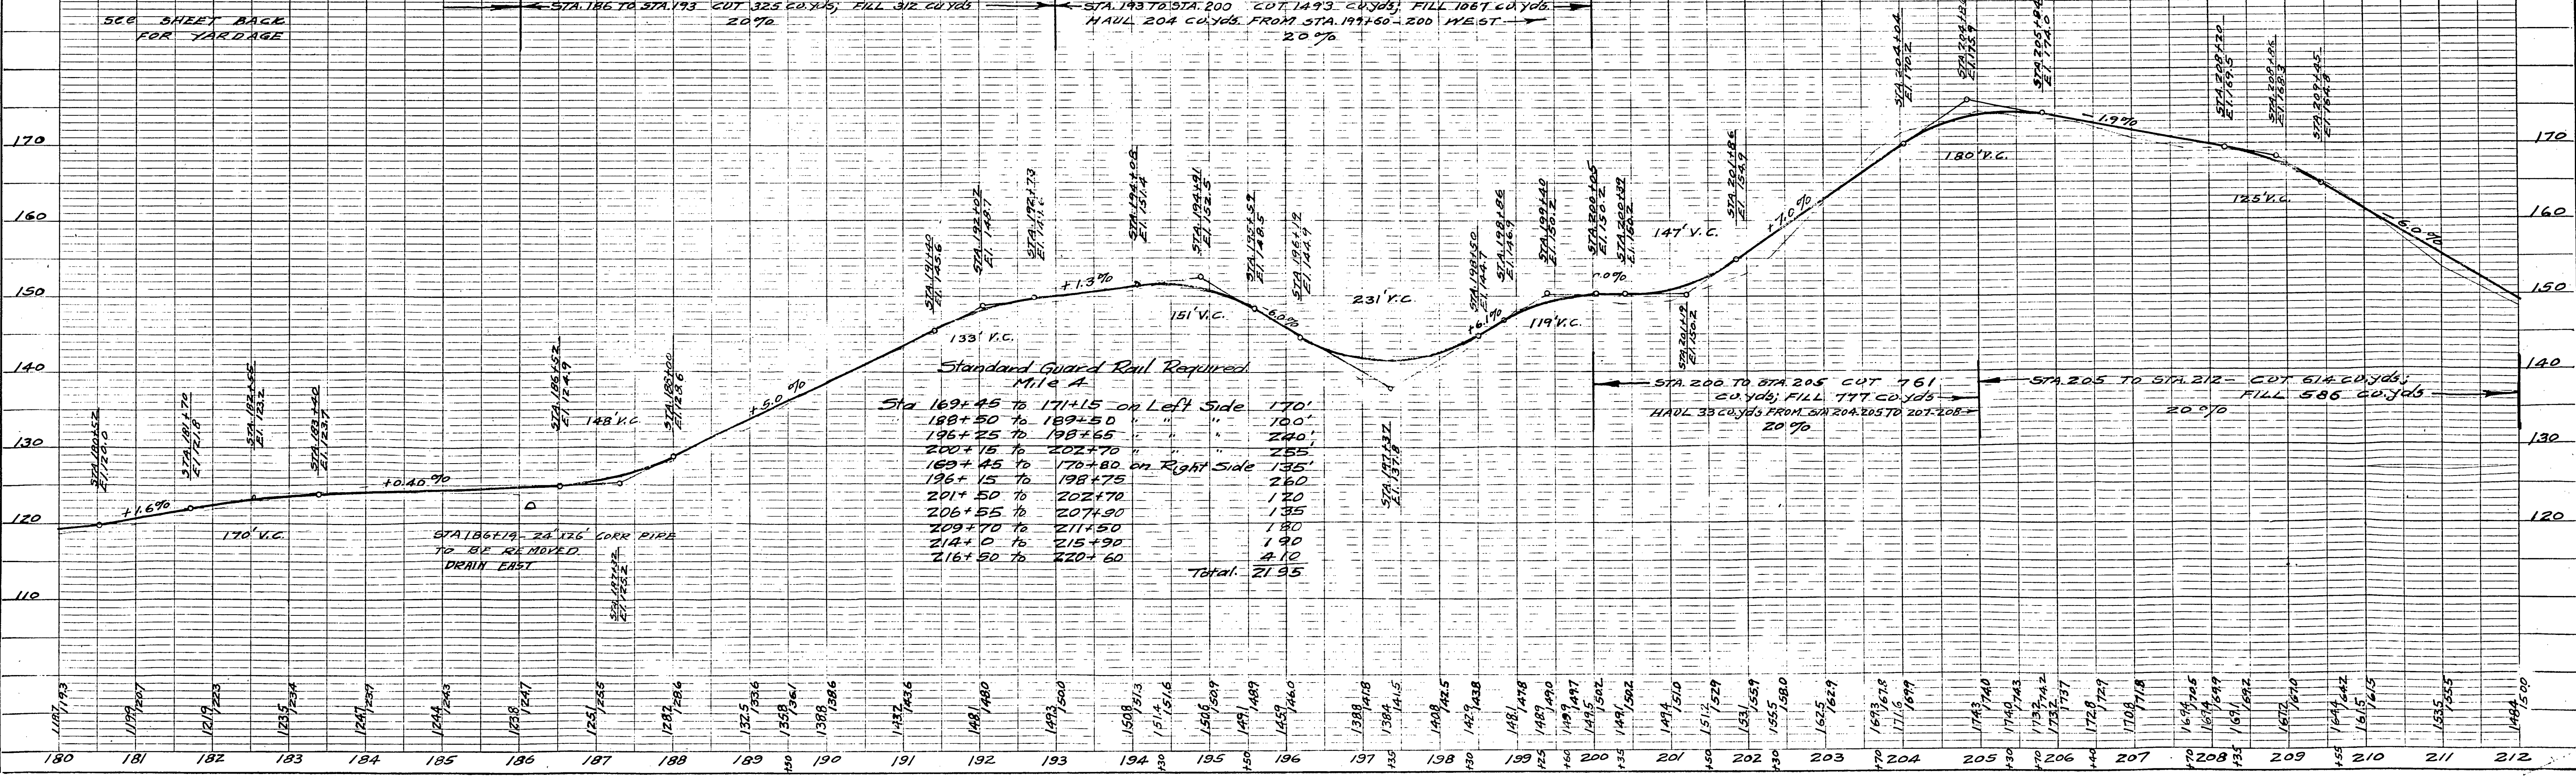 STA. 186 TO STA. 193 CUT 325 CU.Yds; FILL 312 CU Yds
20%
STA. 193 TO STA. 200 CUT 1493 CU.Yds; FILL 1067 CU.Yds.
HAUL 204 CU.Yds. FROM STA. 199+60-200 WEST
20%
SEE SHEET BACK
FOR YARDAGE
STA. 180+52
El. 120.0
STA. 181+70
El. 121.8
STA. 182+55
El. 123.2
STA. 183+40
El. 123.7
STA. 186+52
El. 124.9
STA. 187+32
El. 125.2
STA. 188+00
El. 128.6
STA. 191+40
El. 145.6
STA. 192+07
El. 148.7
STA. 192+73
STA. 194+08
El. 151.4
STA. 194+91
El. 152.5
STA. 195+59
El. 148.5
STA. 196+19
El. 144.9
STA. 197+37
El. 137.8
STA. 198+50
El. 144.7
STA. 198+86
El. 146.9
STA. 199+40
El. 150.2
STA. 200+05
El. 150.2
STA. 200+39
El. 150.2
STA. 201+19
El. 150.2
STA. 201+86
El 154.9
STA. 204+04
El. 170.2
El. 175.9
STA. 205+84
El. 174.0
STA. 208+20
El. 169.5
STA. 208+86
El. 168.3
STA. 209+45
El. 164.8
170
160
150
140
130
120
110
170
160
150
140
130
120
+1.6%
170' V.C.
+0.40%
148' V.C.
+5.0 %
133' V.C.
+1.3%
151' V.C.
-6.0%
231' V.C.
+6.1%
119' V.C.
0%
147' V.C.
+7.0%
180' V.C.
-1.9%
125' V.C.
-6.0%
STA 186+19 - 24"x26' CORR PIPE
TO BE REMOVED
DRAIN EAST
Standard Guard Rail Required
Mile 4
Sta 169+45 to 171+15 on Left Side 170'
188+50 to 189+50 " " " 100'
196+25 to 198+65 " " " 240'
200+15 to 202+70 " " " 255'
169+45 to 170+80 on Right Side 135'
196+15 to 198+75 260
201+50 to 202+70 120
206+55 to 207+90 135
209+70 to 211+50 180
214+0 to 215+90 190
216+50 to 220+60 410
Total. 2195
STA. 200 TO STA. 205 CUT 761
CU.Yds; FILL 777 CU.Yds
HAUL 33 CU.Yds FROM STA 204-205 TO 207-208
20%
STA. 205 TO STA. 212 - CUT 614 CU.Yds;
FILL 586 CU.Yds
20%
118.7 119.3 119.9 120.7 121.9 122.3 123.5 123.4 124.7 123.9 124.4 124.3 123.8 124.7 125.1 125.5 128.2 128.6 132.5 133.6 135.8 136.1 138.8 138.6 143.2 143.6 148.1 148.0 149.3 150.0 150.8 151.3 151.4 151.6 150.6 150.9 149.1 148.9 145.9 146.0 138.8 141.8 138.4 141.5 140.8 142.5 142.9 143.8 148.1 147.8 148.9 149.0 149.9 149.7 149.5 150.2 149.1 150.2 149.4 151.0 151.2 152.9 153.1 155.9 155.5 158.0 162.5 162.9 169.3 167.8 171.6 169.9 174.3 174.0 174.0 174.3 173.2 174.2 173.2 173.7 172.8 172.9 170.8 171.8 169.4 170.5 167.4 169.9 169.1 169.2 167.2 167.0 164.4 164.2 161.5 161.5 153.5 155.5 148.4 150.0
180 181 182 183 184 185 186 187 188 189 +50 190 191 192 193 194 +30 195 +50 196 197 +35 198 +30 199 +25 +60 200 +35 201 +50 202 +30 203 +70 204 205 +30 +70 206 +40 207 +70 208 +35 209 +55 210 211 212